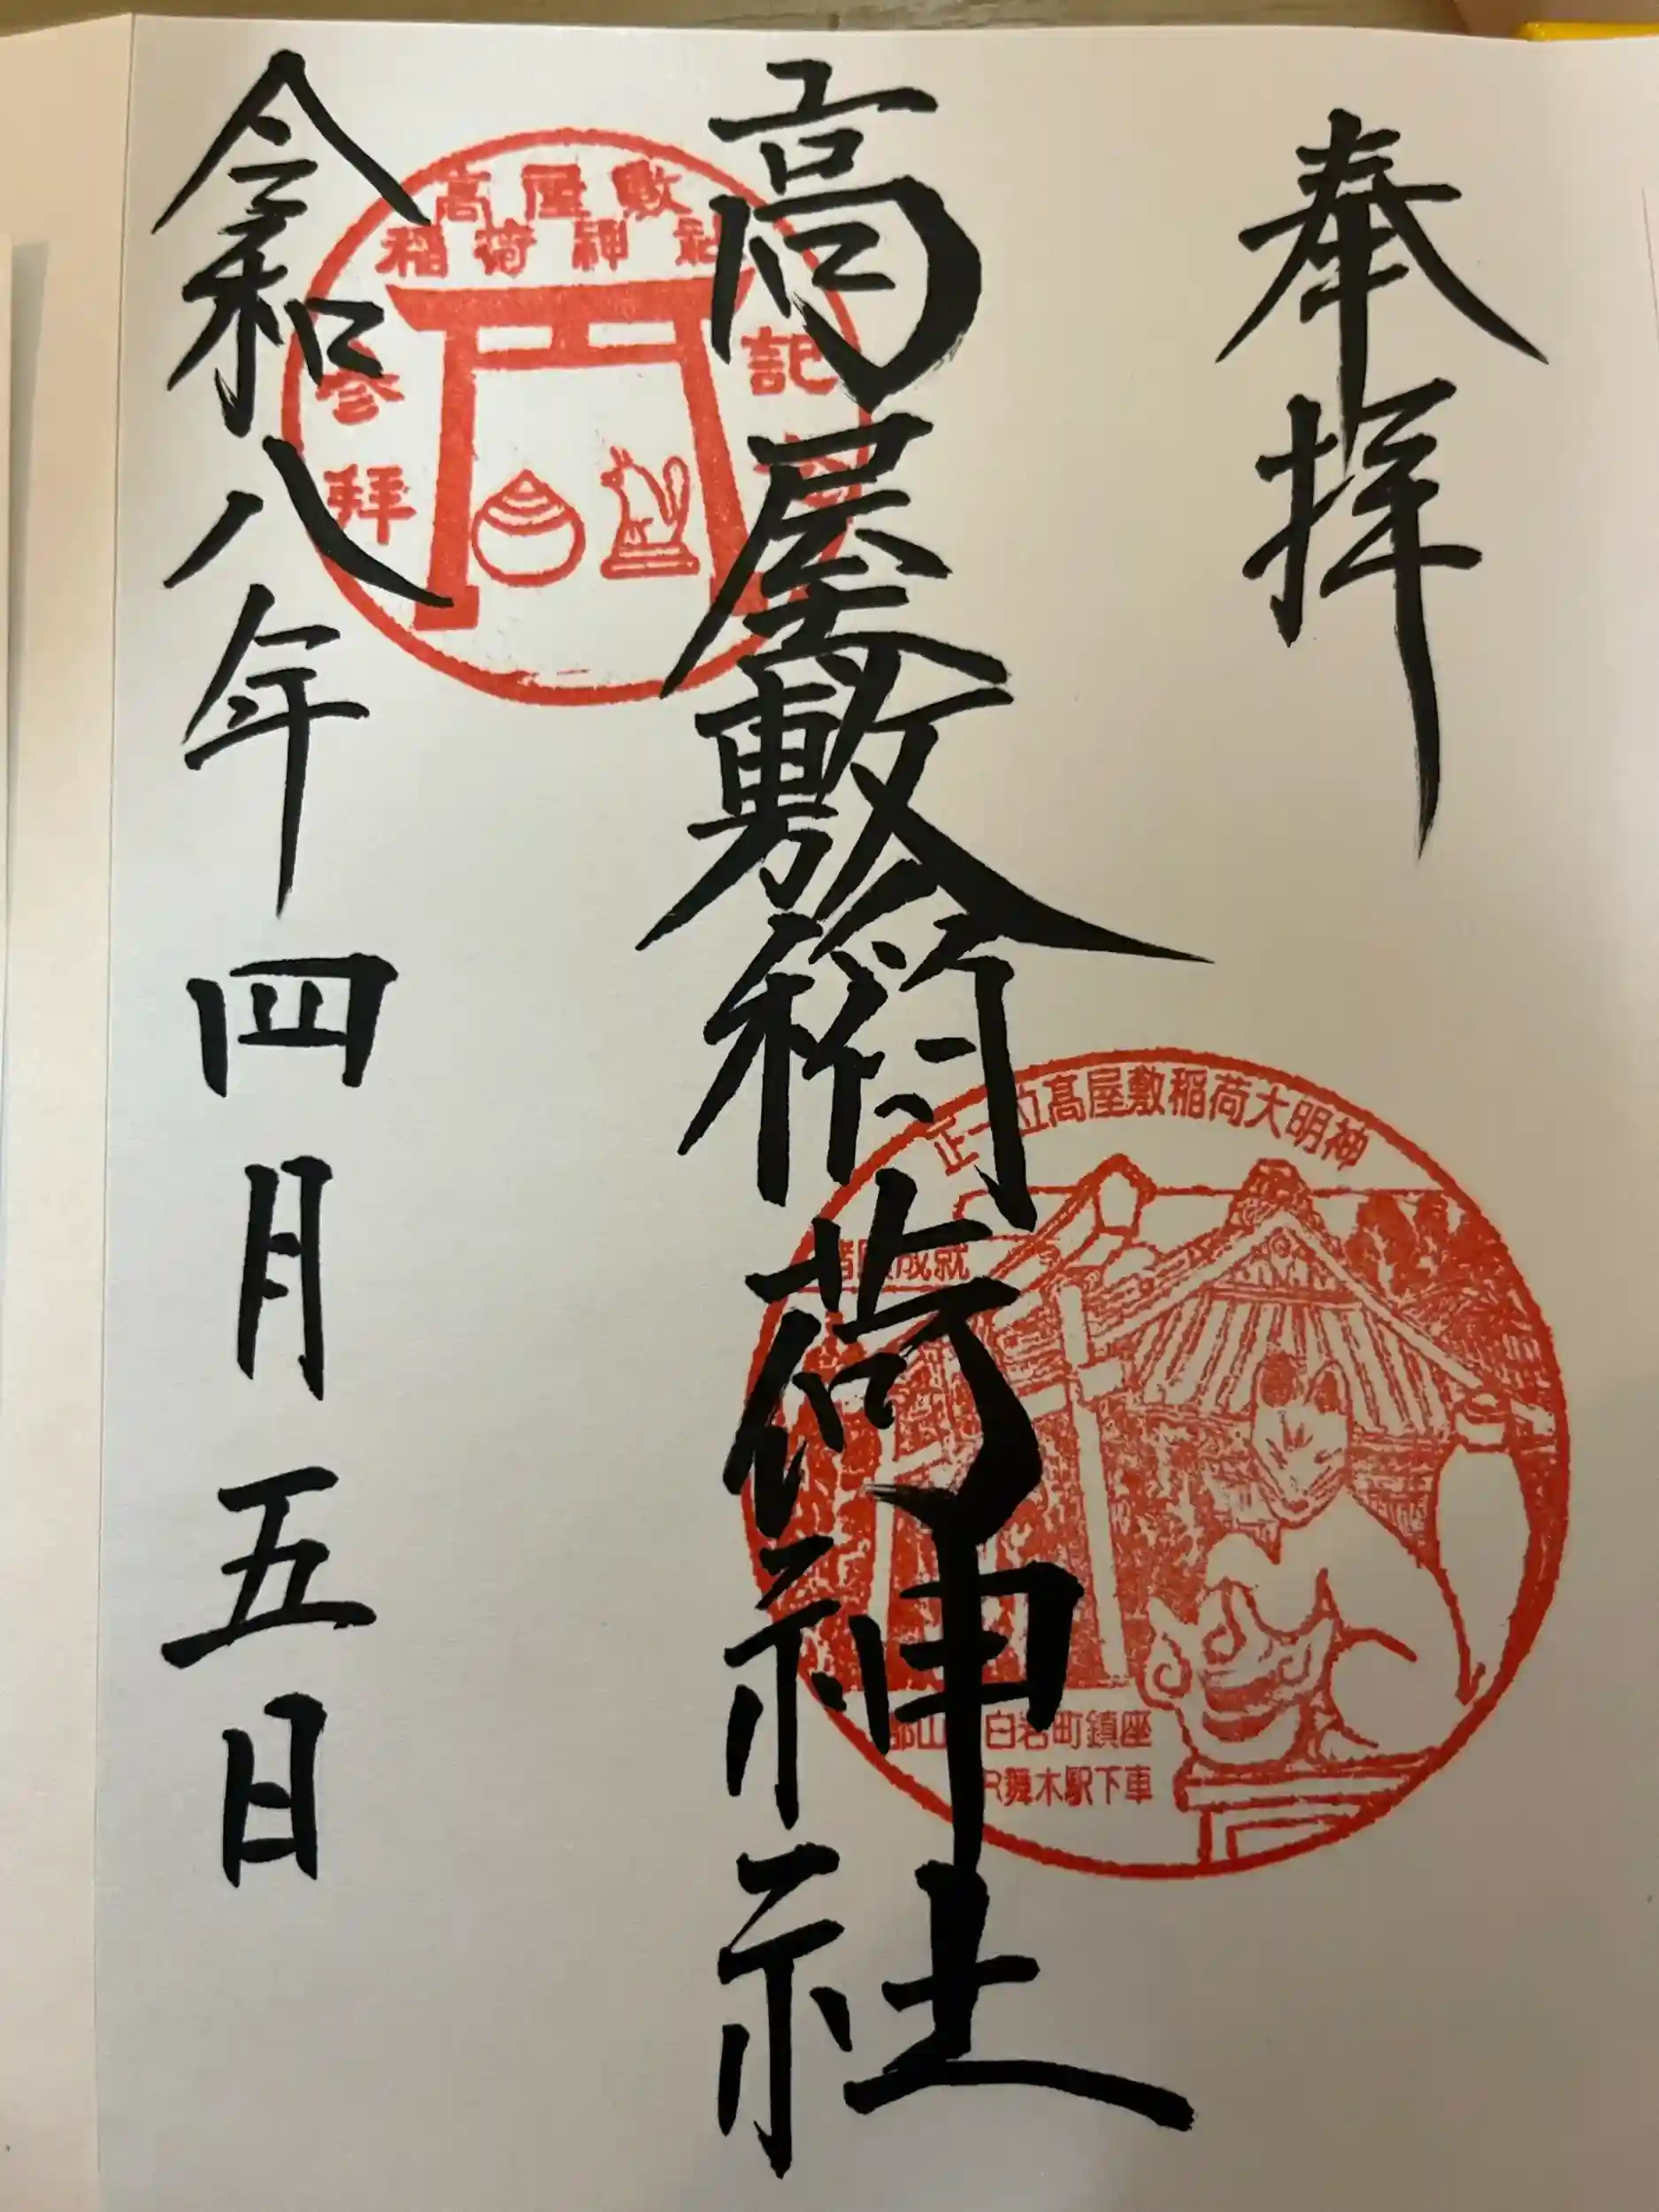 奉拝
高屋敷稲荷神社
令和八年四月五日
高屋敷
稲荷神社
参拝
記
正一位高屋敷稲荷大明神
諸願成就
郡山 白岩町鎮座
JR舞木駅下車